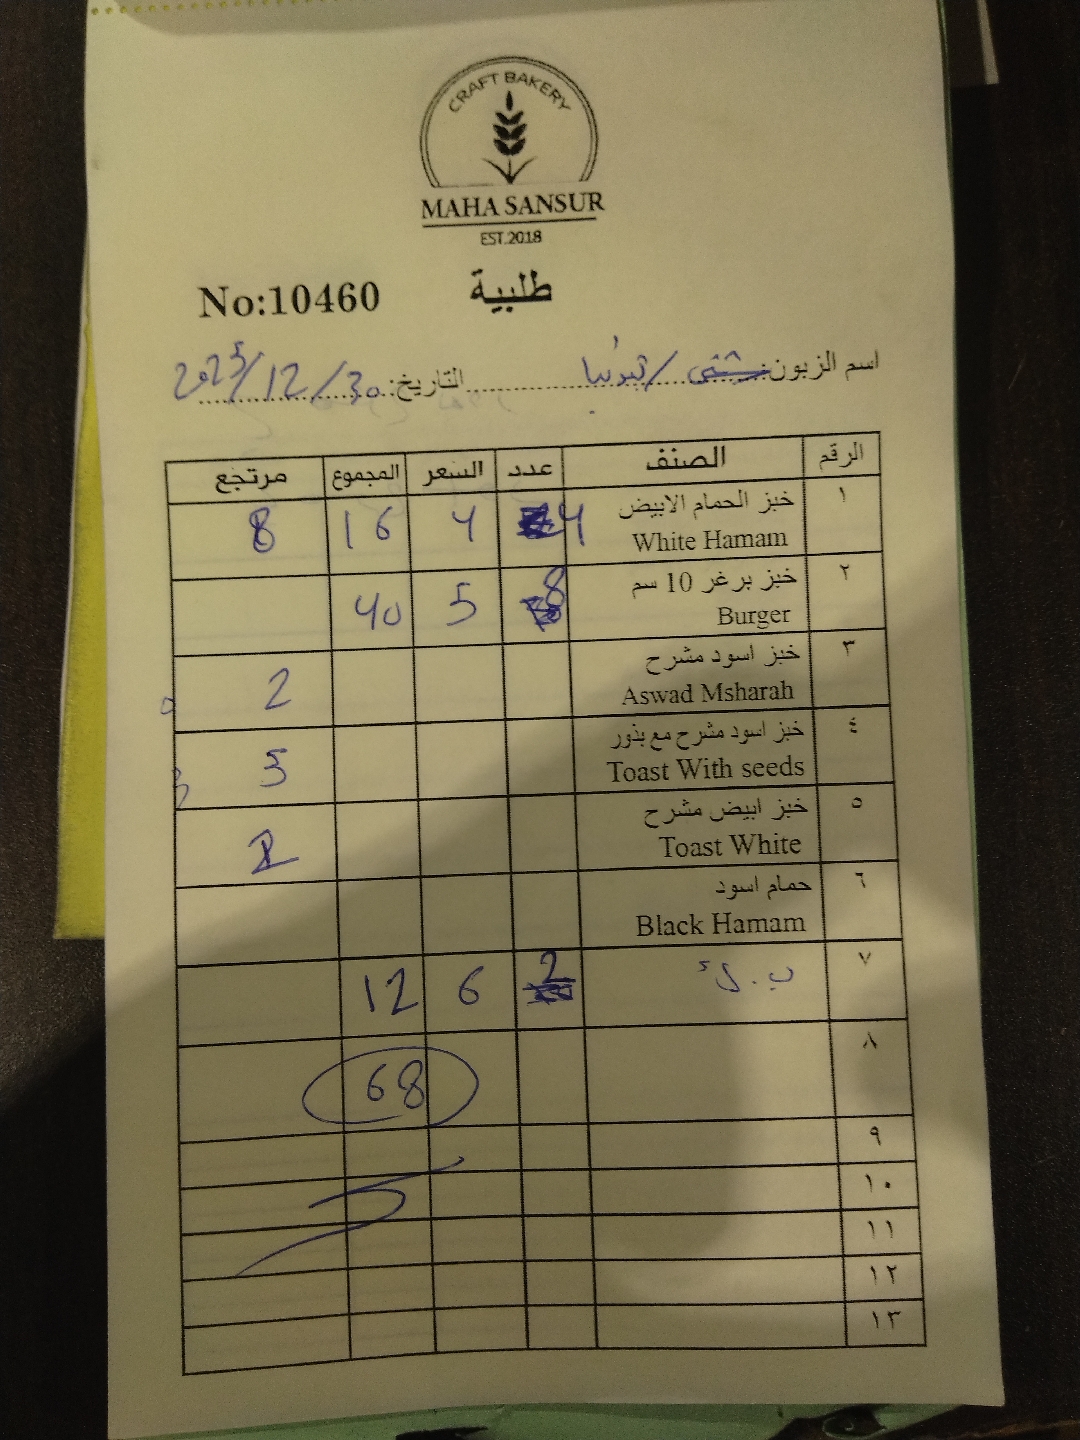 CRAFT BAKERY
MAHA SANSUR
EST.2018
No:10460 طلبية
اسم الزبون: التاريخ: 2025/12/30
الرقم الصنف عدد السعر المجموع مرتجع
١ خبز الحمام الابيض 4 4 16 8
White Hamam
٢ خبز برغر 10 سم 8 5 40
Burger
٣ خبز اسود مشرح 2
Aswad Msharah
٤ خبز اسود مشرح مع بذور 5
Toast With seeds
٥ خبز ابيض مشرح
Toast White
٦ حمام اسود
Black Hamam
٧ 2 6 12
٨ 68
٩
١٠
١١
١٢
١٣